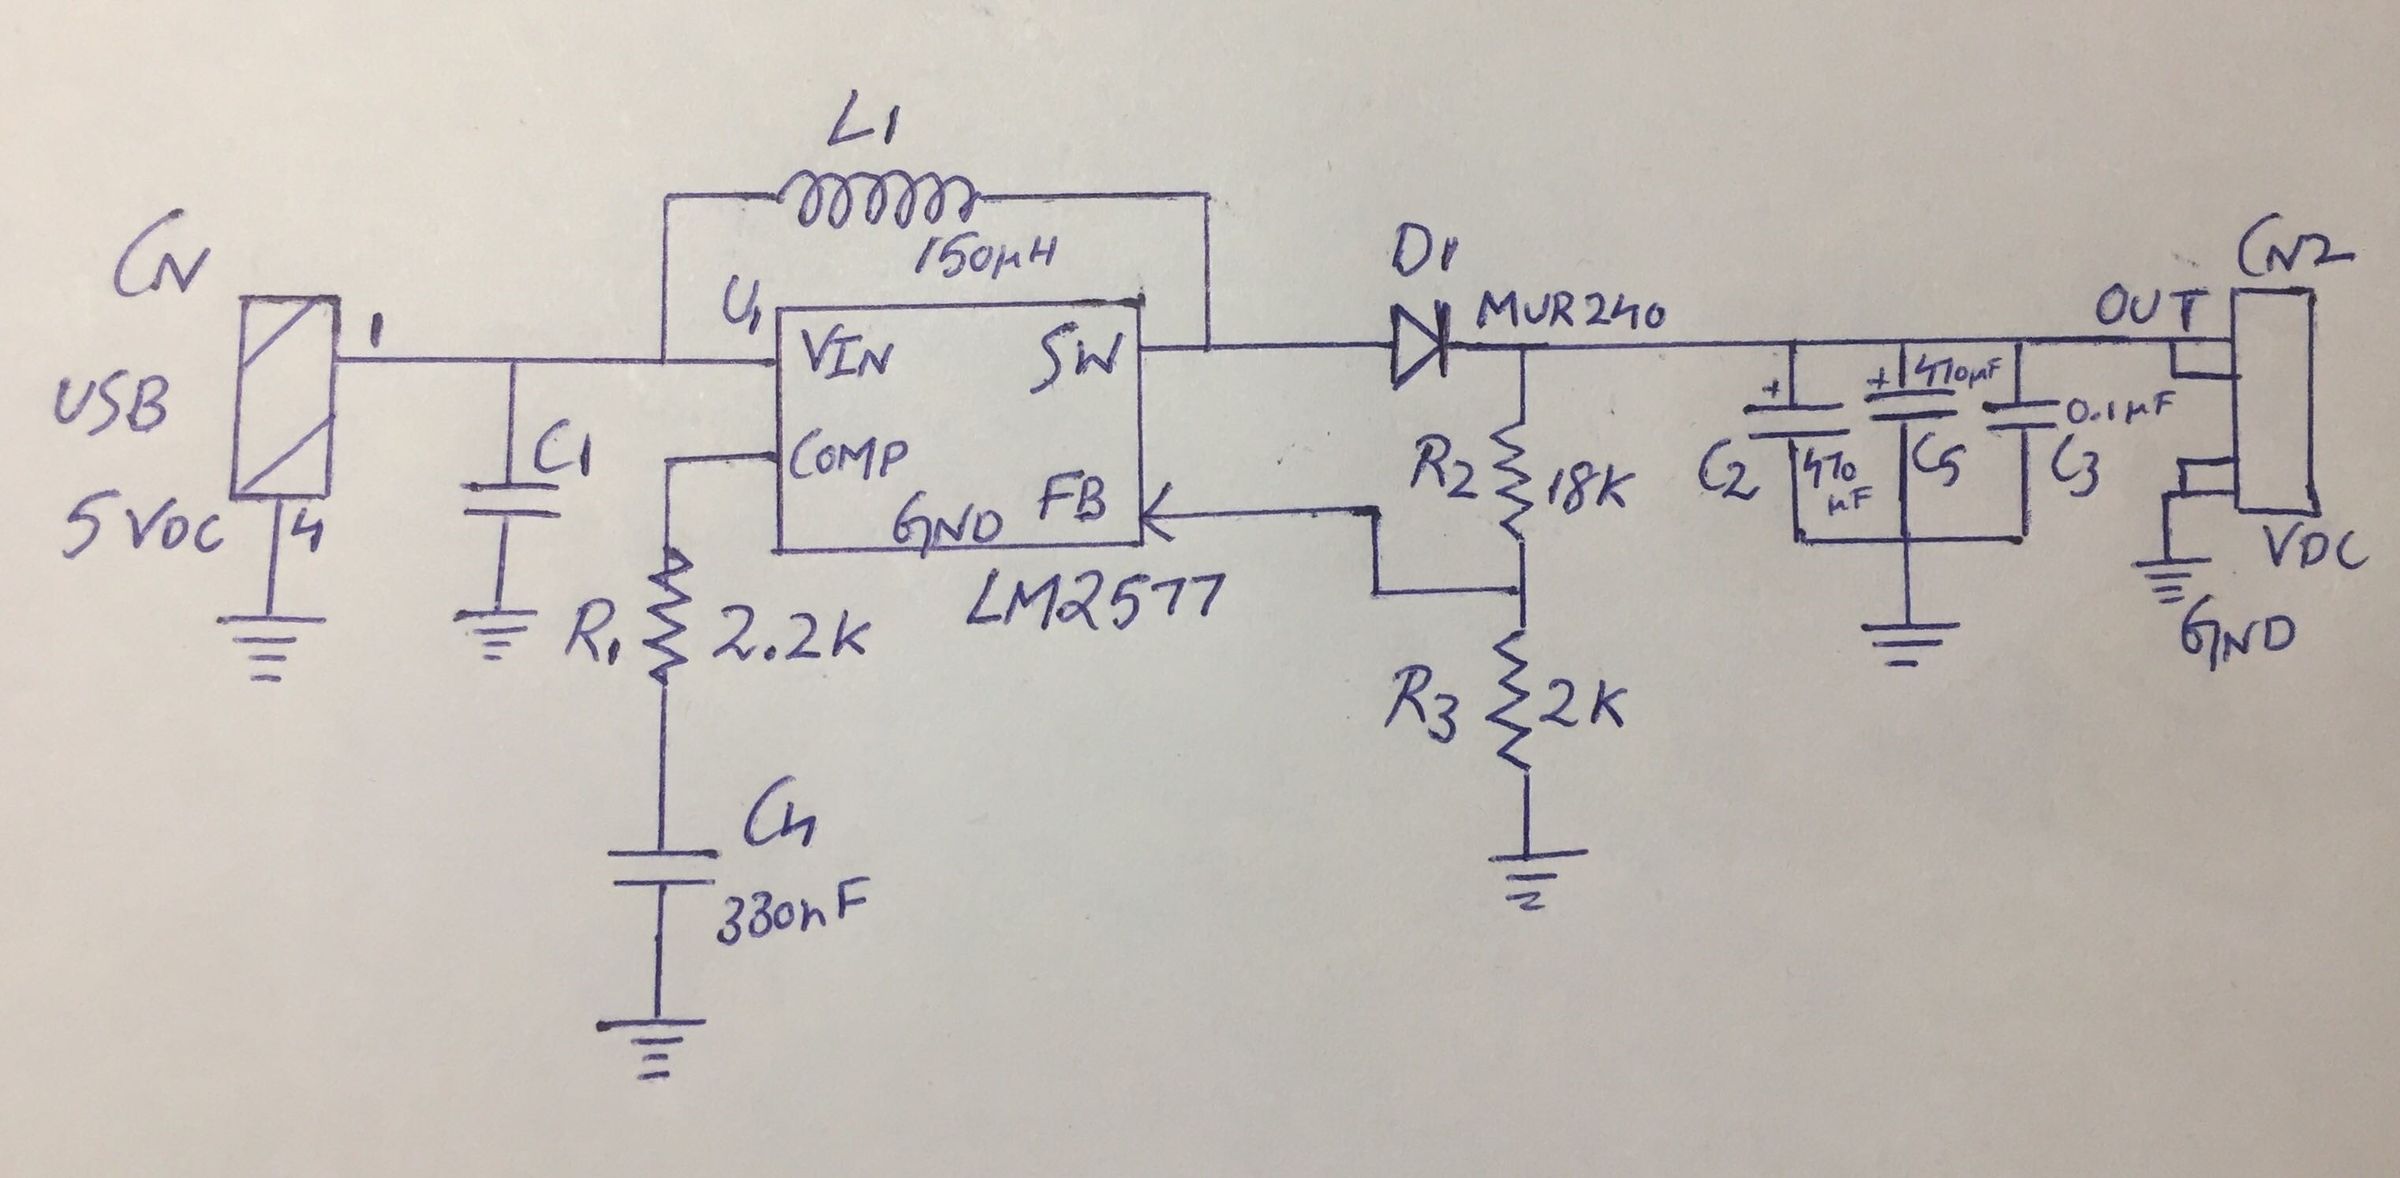 L1
150µH
CN
USB
5 VDC
1
4
C1
U1
VIN
SW
COMP
GND
FB
LM2577
R1
2.2K
C4
330nF
D1
MUR240
R2
18K
R3
2K
+
470
µF
C2
+
470µF
C5
0.1µF
C3
OUT
CN2
VDC
GND